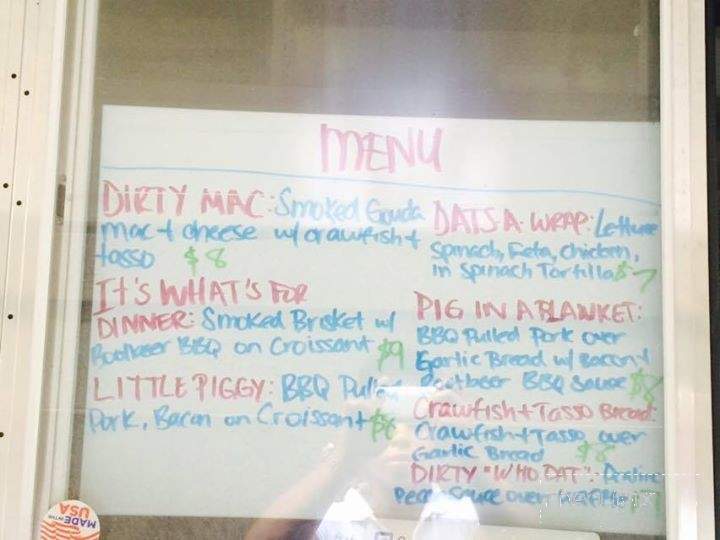 MENU
DIRTY MAC: Smoked Gouda
mac + cheese w/ crawfish +
tasso $8
It's WHAT'S FOR
DINNER: Smoked Brisket w/
Rootbeer BBQ on Croissant $9
LITTLE PIGGY: BBQ Pulled
Pork, Bacon on Croissant $8
DATS-A-WRAP: Lettuce
Spinach, Feta, Chicken,
in Spinach Tortilla $7
PIG IN A BLANKET:
BBQ Pulled Pork over
Garlic Bread w/ Bacon +
Rootbeer BBQ Sauce $8
Crawfish + Tasso Bread:
Crawfish + Tasso over
Garlic Bread $8
DIRTY "WHO DAT": Praline
Pecan Sauce over Waffle
MADE IN THE
USA